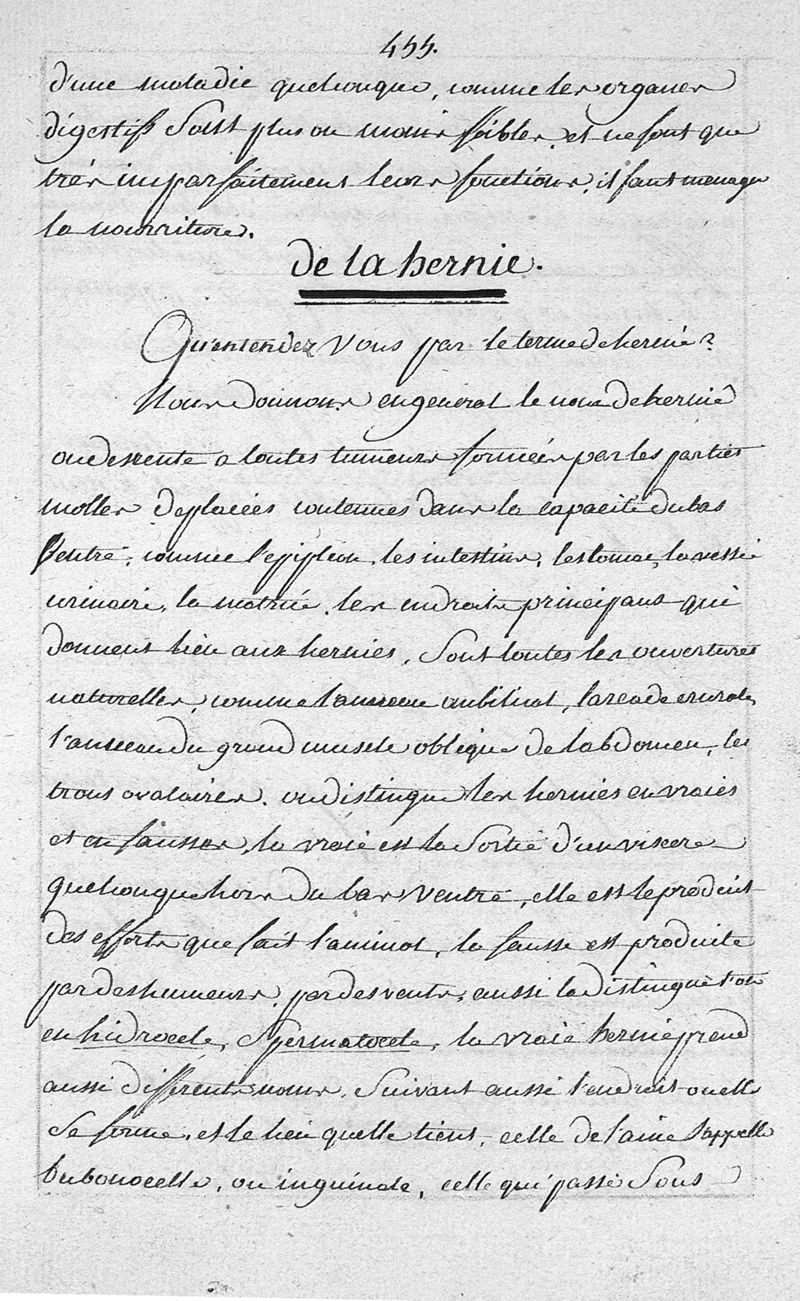 455.
d'une maladie quelconque, comme les organes
digestifs sont plus ou moins foibles, et ne font que
très imparfaitement leurs fonctions, il faut menager
la nourriture.
de la hernie.
Qu'entendez vous par le terme de hernie?
Nous donnons en general le nom de hernie
ou desente a toutes tumeurs formées par les parties
molles deplacées contenues dans la capacité du bas
Ventre, comme l'epiploon, les intestins, lestomac, la vessie
urinaire, la matrice, les endroits principaux qui
donnent lieu aux hernies, Sont toutes les ouvertures
naturelles, comme l'anneau ombilical, larcade crurale,
l'anneau du grand muscle oblique de labdomen, les
trous ovalaires. on distingue les hernies en vraies
et en fausses, la vraie est la Sortie d'un viscere
quelconque hors du bas Ventre, elle est le produit
des efforts que fait l'animal, la fausse est produite
par des humeurs, par des vents, aussi la distingue t'on
en hidrocele, Spermatocele, la vraie hernie prend
aussi differents noms, Suivant aussi l'endroit ou elle
Se forme, et le lieu quelle tient, celle de l'aine s'appelle
bubonocelle, ou inguinale, celle qui passe Sous